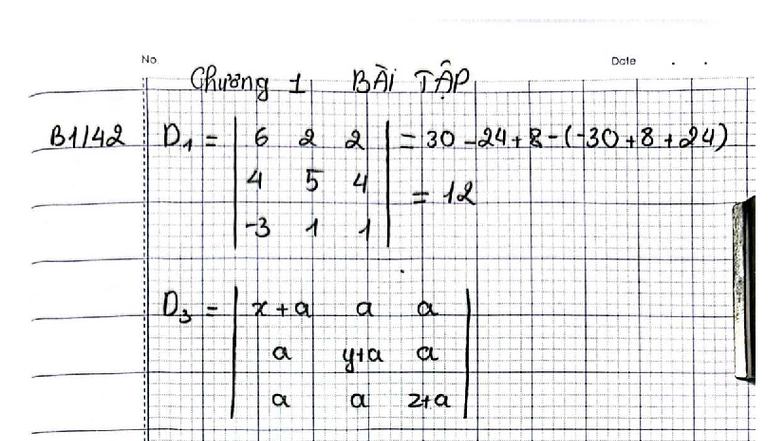 No Date . .
Chương 1 BÀI TẬP
B1/42 D₁ = | 6 2 2 | = 30 - 24 + 8 - (-30 + 8 + 24)
| 4 5 4 | = 12
| -3 1 1 |
D₃ = | x+a a a |
| a y+a a |
| a a z+a |